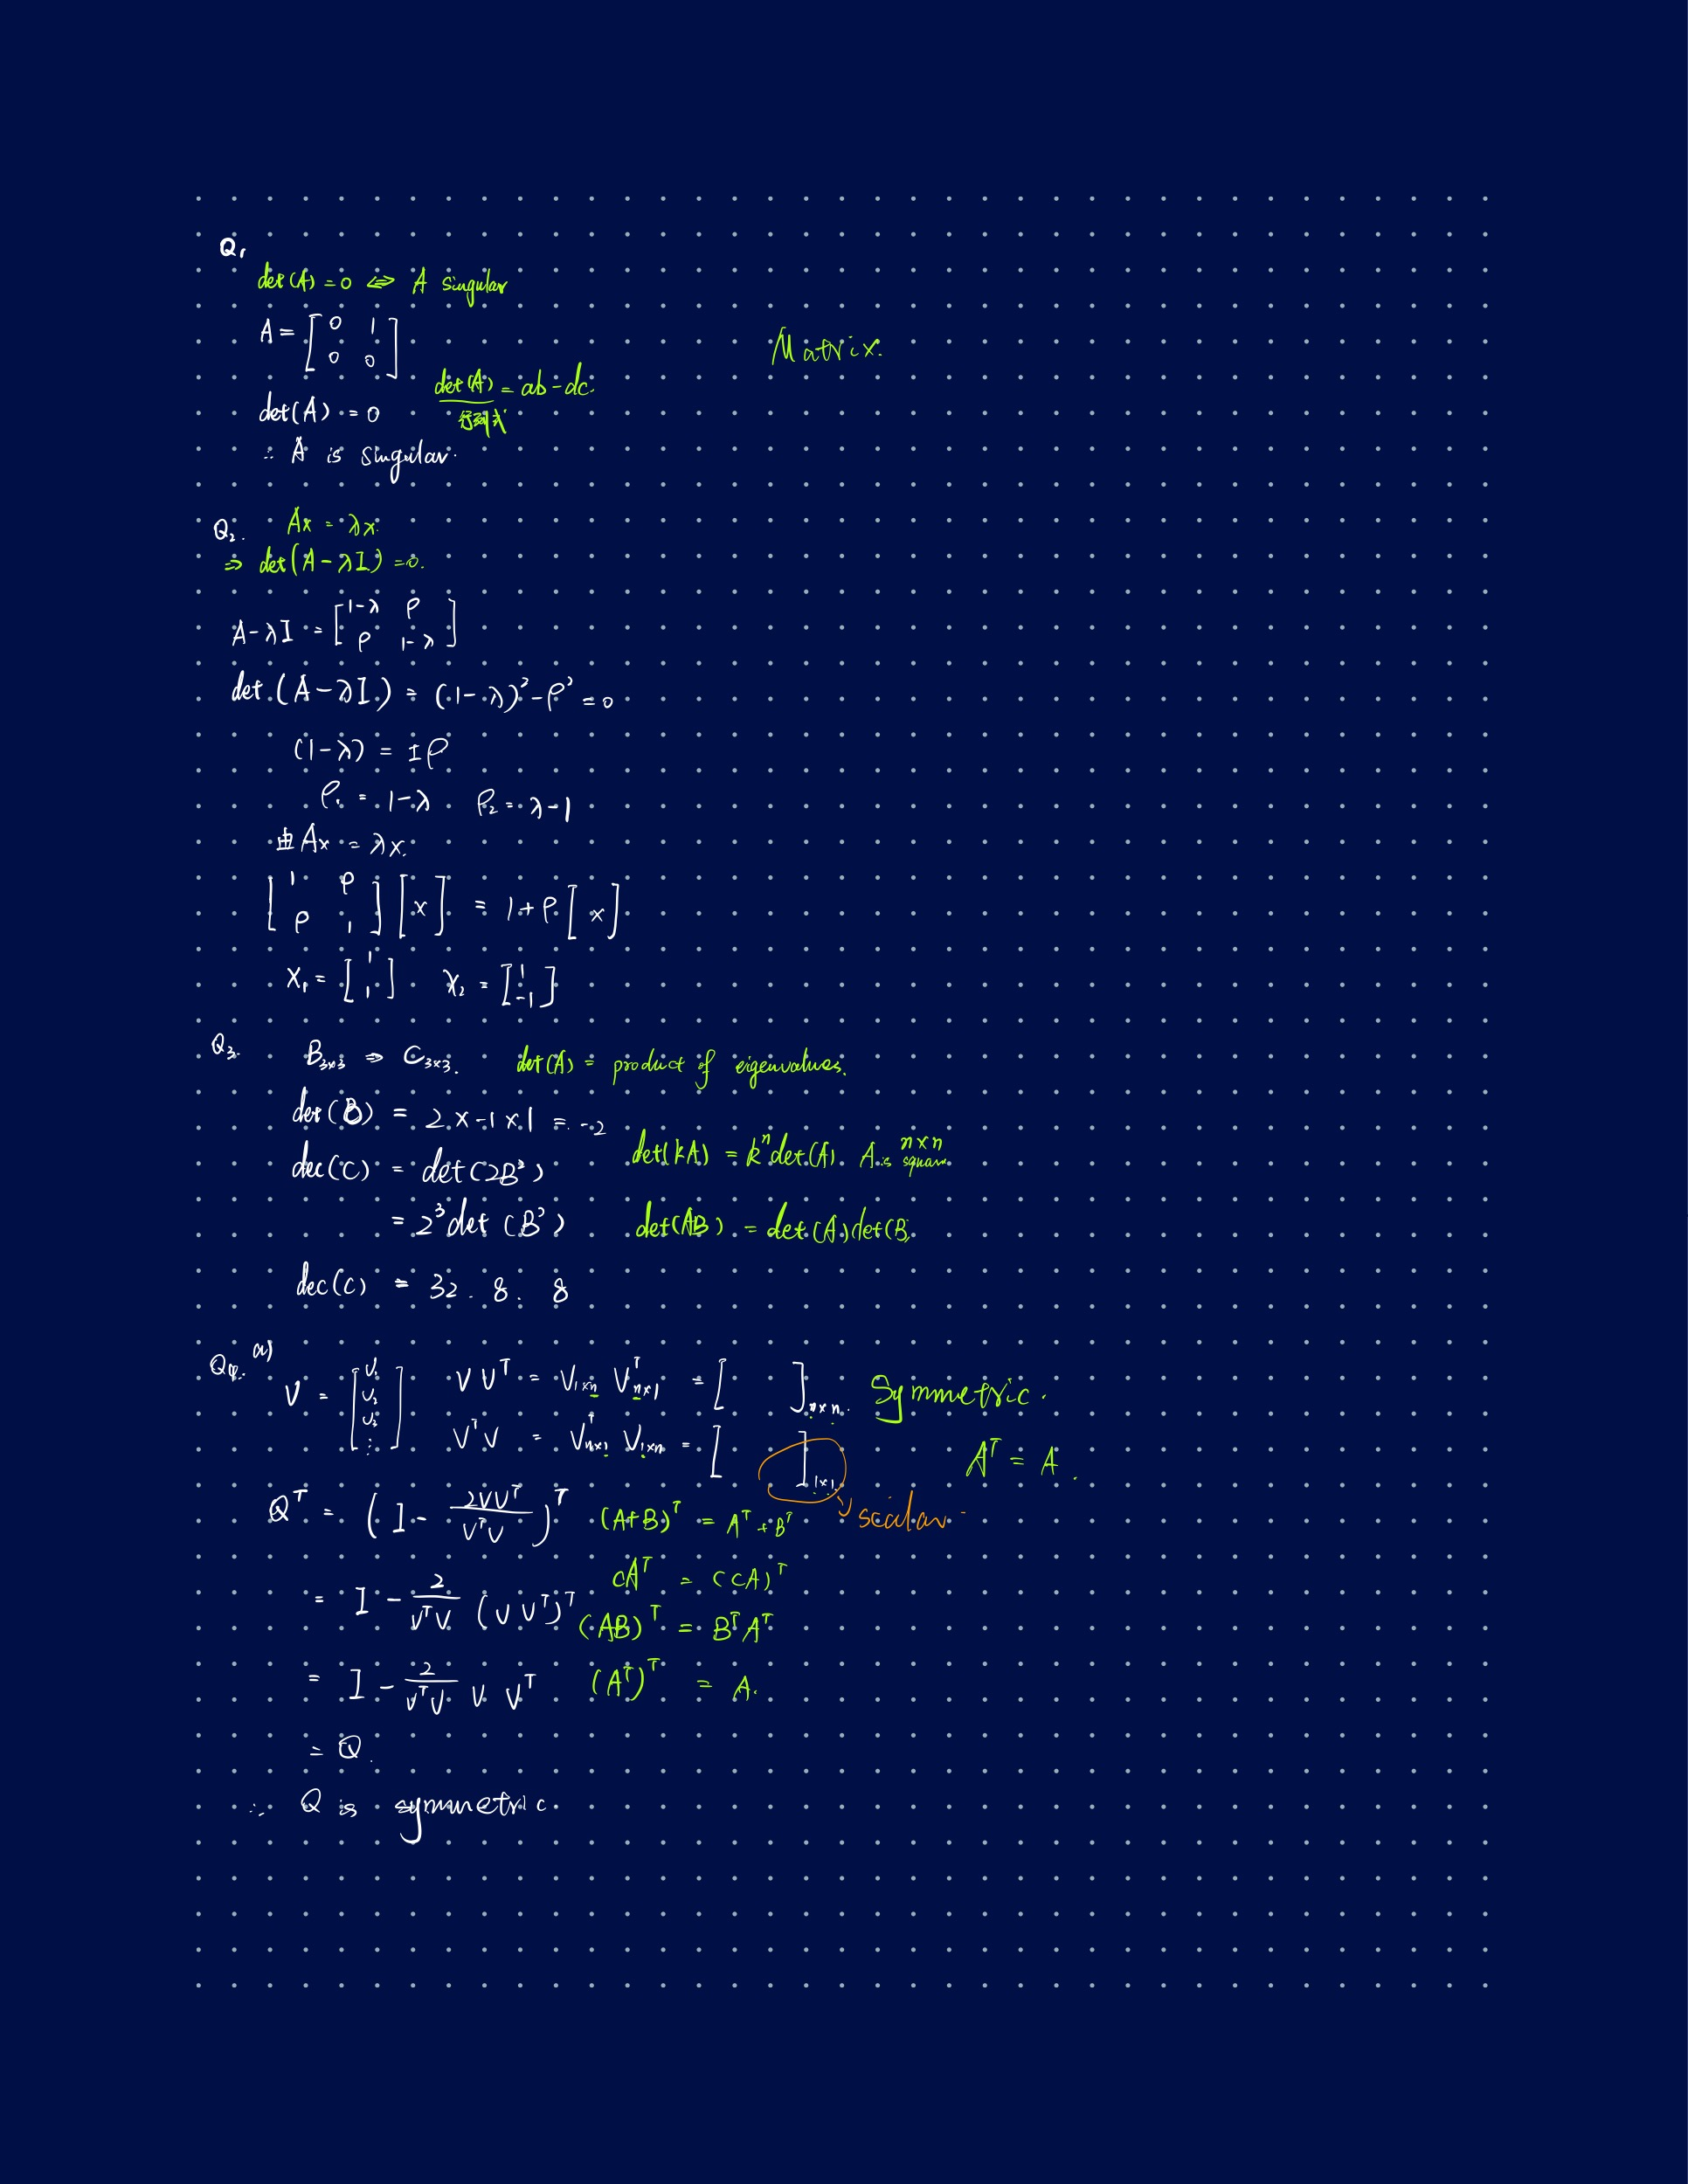 Q1
det(A) = 0 ⇔ A singular
A = [0 1
0 0]
Matrix.
det(A) = ab - dc.
行列式
det(A) = 0
∴ A is singular.
Q2. Ax = λx.
⇒ det(A - λI) = 0.
A - λI = [1-λ ρ
ρ 1-λ]
det(A - λI) = (1-λ)² - ρ² = 0
(1-λ) = ±ρ
ρ1 = 1-λ ρ2 = λ-1
由 Ax = λx.
[1 ρ
ρ 1] [x] = 1+ρ [x]
x1 = [1
1] x2 = [1
-1]
Q3. B3×3 ⇒ C3×3. det(A) = product of eigenvalues.
det(B) = 2 × -1 × 1 = -2
det(kA) = kⁿ det(A) A is n×n square
dec(C) = det(2B²)
= 2³ det(B²) det(AB) = det(A) det(B)
dec(C) = 32. 8. 8
Q4. a)
V = [V1
V2
V3
⋮] V Vᵀ = V1×n Vᵀn×1 = [ ]n×n. Symmetric.
VᵀV = Vᵀn×1 V1×n = [ ]1×1 Aᵀ = A.
scalar
Qᵀ = (I - 2VVᵀ/VᵀV)ᵀ (A+B)ᵀ = Aᵀ + Bᵀ
= I - 2/VᵀV (V Vᵀ)ᵀ cAᵀ = (cA)ᵀ
(AB)ᵀ = BᵀAᵀ
= I - 2/VᵀV V Vᵀ (Aᵀ)ᵀ = A.
= Q.
∴ Q is symmetric.